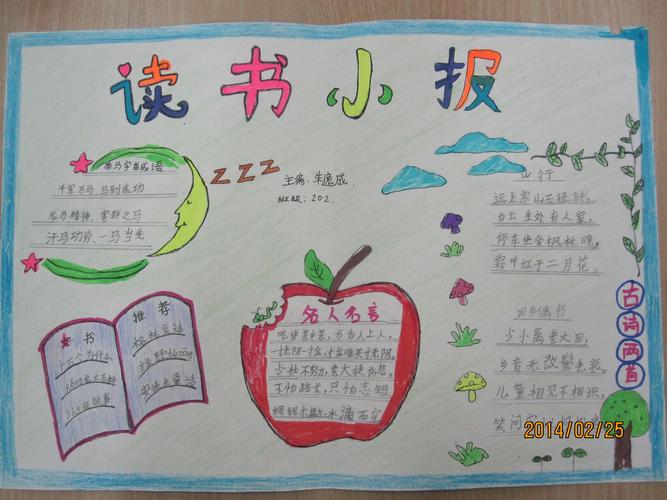 读书小报
带马字的成语
千军万马、马到成功
龙马精神、害群之马
汗马功劳、一马当先
ZZZ
主编：朱逸成
班级：202.
山行
远上寒山石径斜，
白云生处有人家。
停车坐爱枫林晚，
霜叶红于二月花。
回乡偶书
少小离老大回，
乡音无改鬓毛衰。
儿童相见不相识，
笑问
古诗两首
好书
十万个为什么
故事
推荐
格林童话
绿野仙踪
安徒生童话
名人名言
吃得苦中苦，方为人上人。
一寸光阴一寸金，寸金难买寸光阴。
少壮不努力，老大徒伤悲。
不怕路长，只怕志短
绳锯木断，水滴石穿
2014/02/25